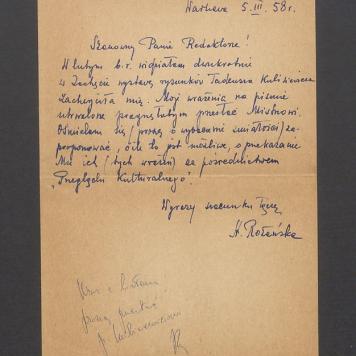 Warszawa 5.III.58r.
Szanowny Panie Redaktorze!
W lutym b.r. widziałam dwukrotnie
w Zachęcie wystawę rysunków Tadeusza Kulisiewicza
Zachwyciła mię. Moje wrażenia na piśmie
utrwalone pragnęłabym przesłać Mistrzowi.
Ośmielam się (proszę o wybaczenie śmiałości) za-
proponować, o ile to jest możliwe, o przekazanie
Mu ich (tych wrażeń) za pośrednictwem
„Przeglądu Kulturalnego".
Wyrazy szacunku łączę
H. Rożańska
proszę